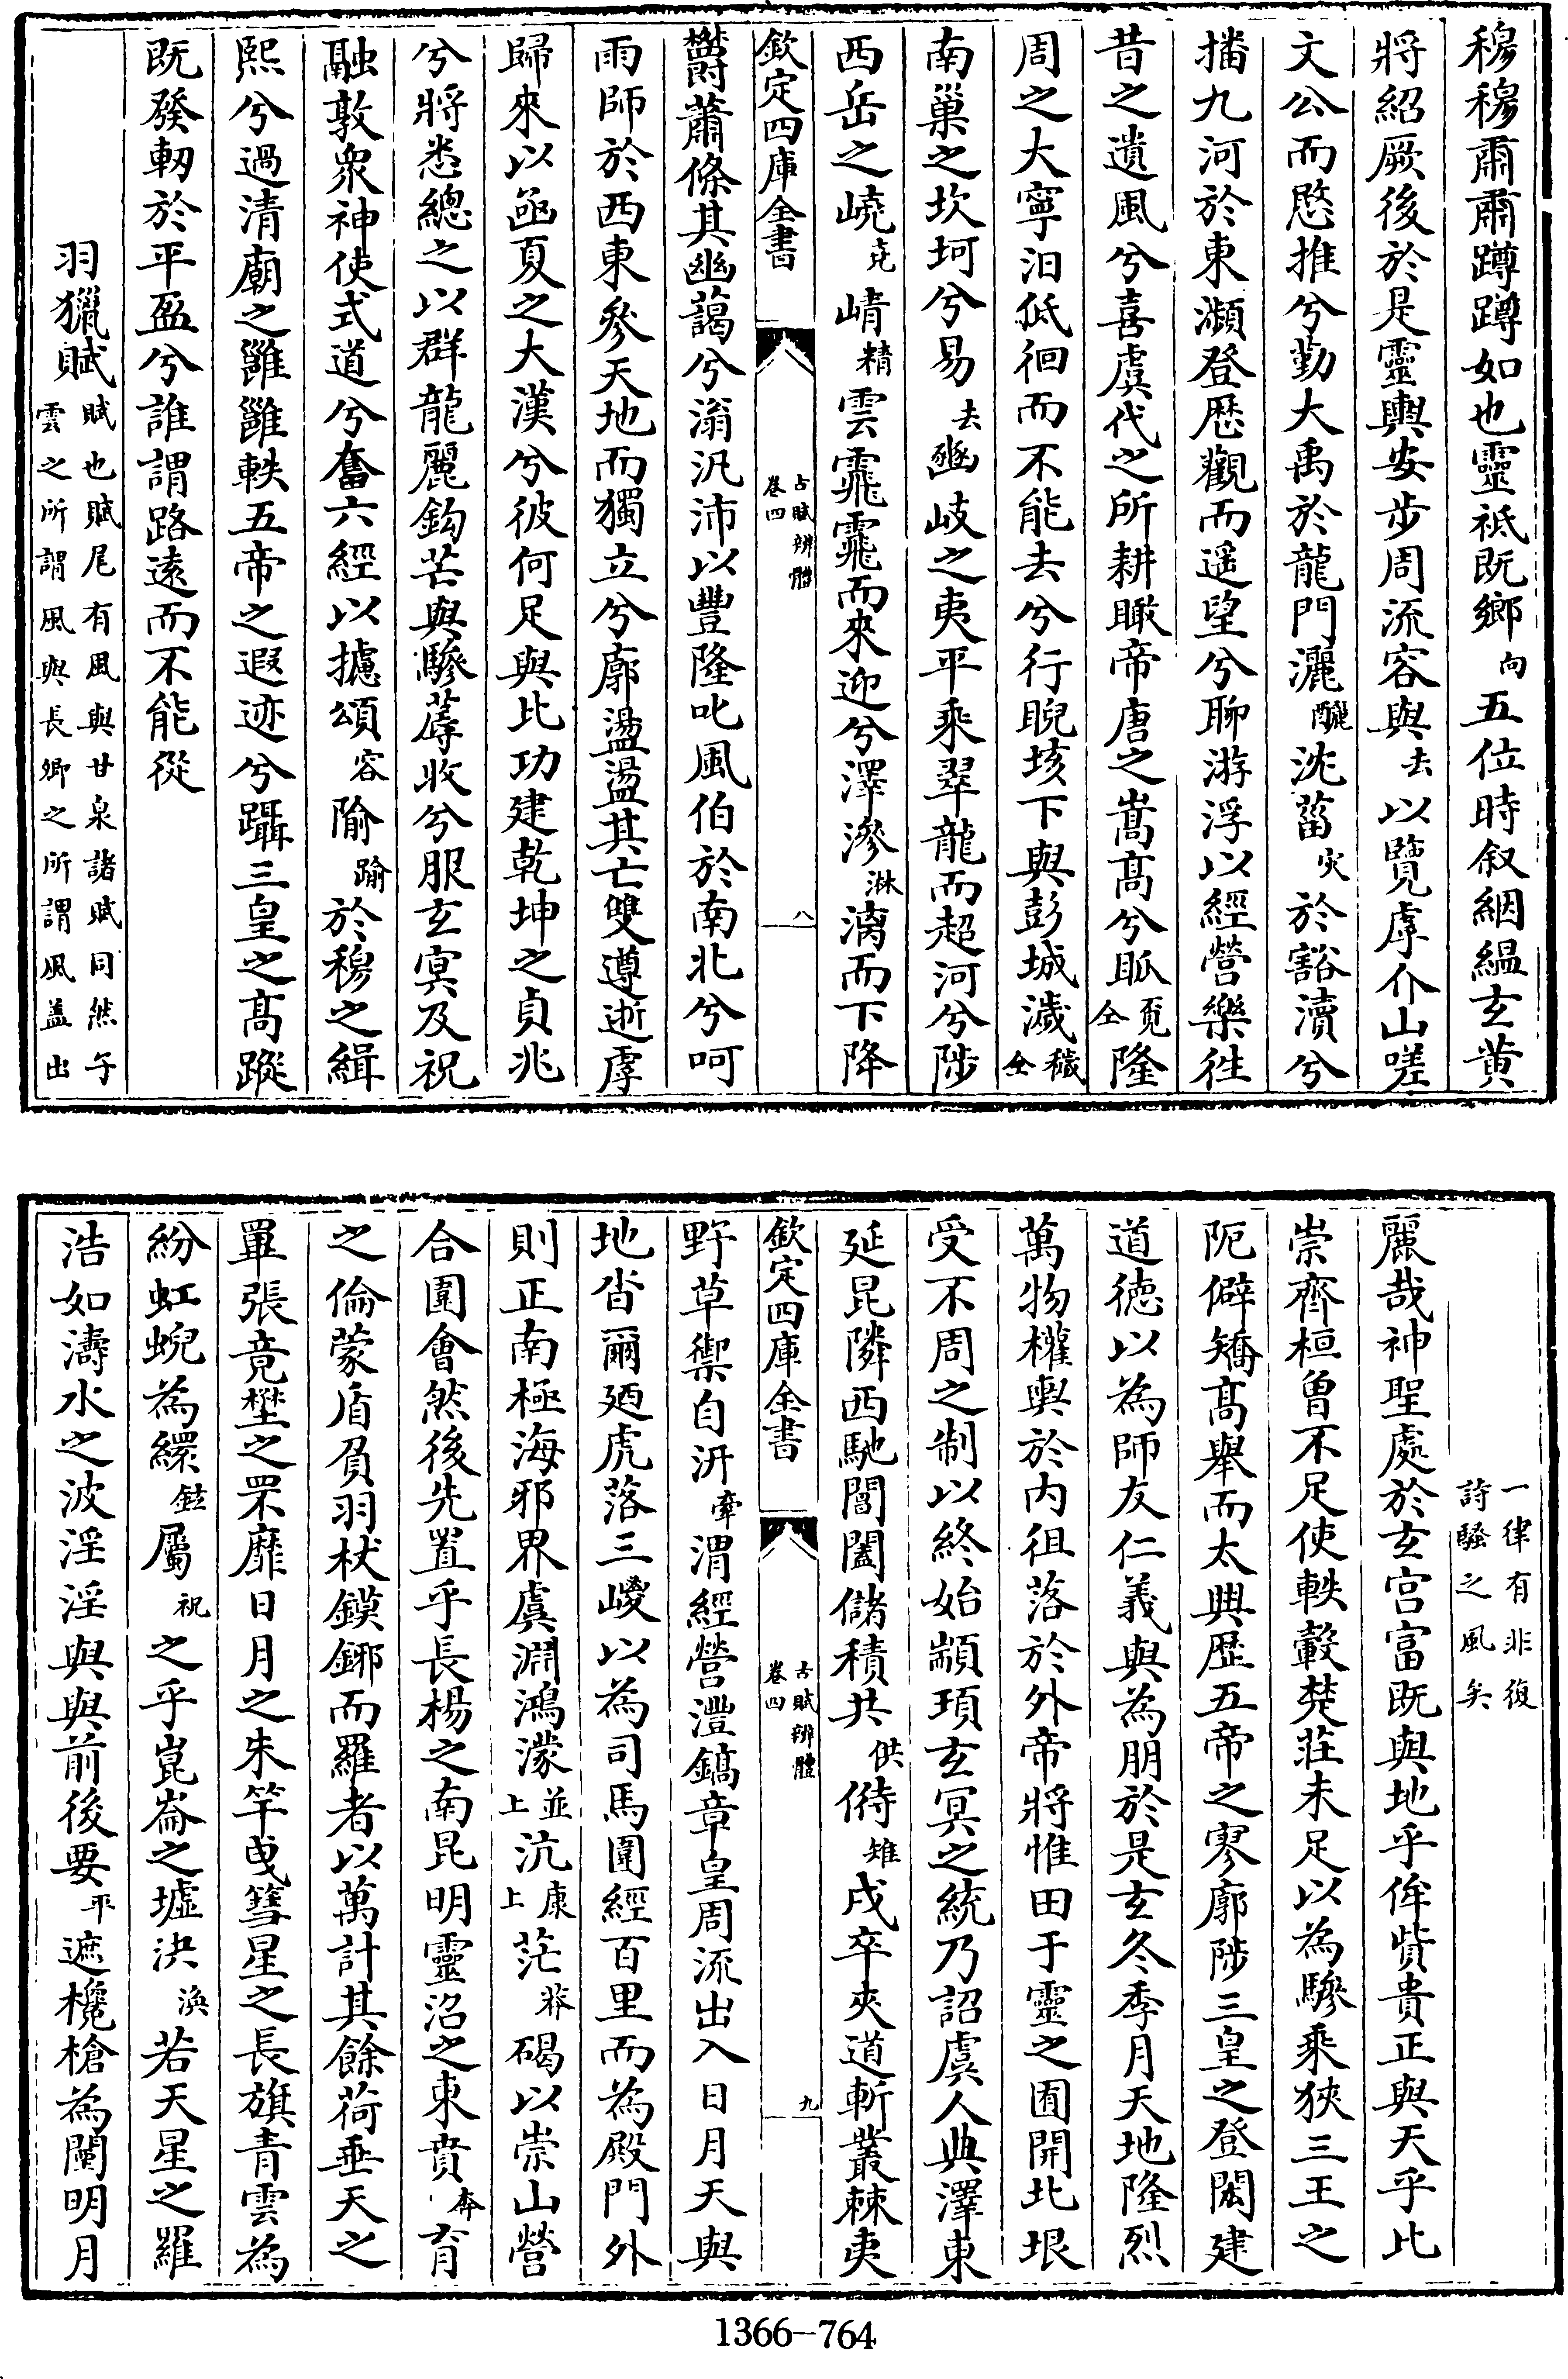 穆穆肅肅蹲蹲如也靈祗既鄉向五位時叙絪緼玄黄
將紹厥後於是靈輿安步周流容與去以覽虖介山嗟
文公而愍推兮勤大禹於龍門灑釃沈菑灾於豁瀆兮
播九河於東瀕登歴觀而遥望兮聊游浮以經營樂徃
昔之遺風兮喜虞代之所耕瞰帝唐之嵩髙兮眽覔仝隆
周之大寧汨低徊而不能去兮行睨垓下與彭城濊穢仝
南巢之坎坷兮易去豳岐之夷平乘翠龍而超河兮陟
西岳之嶢尭崝精雲霏霏而來迎兮澤滲淋漓而下降
欽定四庫全書
古賦辨體
卷四
八
鬱蕭條其幽藹兮滃汎沛以豐隆叱風伯於南北兮呵
雨師於西東參天地而獨立兮廓盪盪其亡雙遵逝虖
歸來以函夏之大漢兮彼何足與比功建乾坤之貞兆
兮將悉總之以群龍麗鈎芒與驂蓐收兮服玄冥及祝
融敦衆神使式道兮奮六經以攄頌容隃踰於穆之緝
熙兮過清廟之雝雝軼五帝之遐迹兮躡三皇之髙蹤
既發軔於平盈兮誰謂路遠而不能從
羽獵賦賦也賦尾有風與甘泉諸賦同然子
雲之所謂風與長卿之所謂風盖出
一律有非復
詩騷之風矣
麗哉神聖處於玄宫富既與地乎侔貲貴正與天乎比
崇齊桓曽不足使軼轂楚莊未足以為驂乘狹三王之
阨僻矯髙舉而太興歴五帝之寥廓陟三皇之登閎建
道徳以為師友仁義與為朋於是玄冬季月天地隆烈
萬物權輿於内徂落於外帝將惟田于靈之囿開北垠
受不周之制以終始顓頊玄冥之統乃詔虞人典澤東
延昆隣西馳閶闔儲積共供偫雉戍卒夾道斬叢棘夷
欽定四庫全書
古賦辨體
卷四
九
野草禦自汧牽渭經營灃鎬章皇周流出入日月天與
地沓爾廼虎落三嵕以為司馬圍經百里而為殿門外
則正南極海邪界虞淵鴻濛並上沆康上茫莽碣以崇山營
合圍會然後先置乎長楊之南昆明靈沼之東賁奔育
之倫蒙盾負羽杖鏌鋣而羅者以萬計其餘荷垂天之
畢張竟壄之罘靡日月之朱竿曵篲星之長旗青雲為
紛虹蜺為繯鉉屬祝之乎崑崙之墟泱渙若天星之羅
浩如濤水之波淫淫與與前後要平遮欃槍為闉明月
1366-764